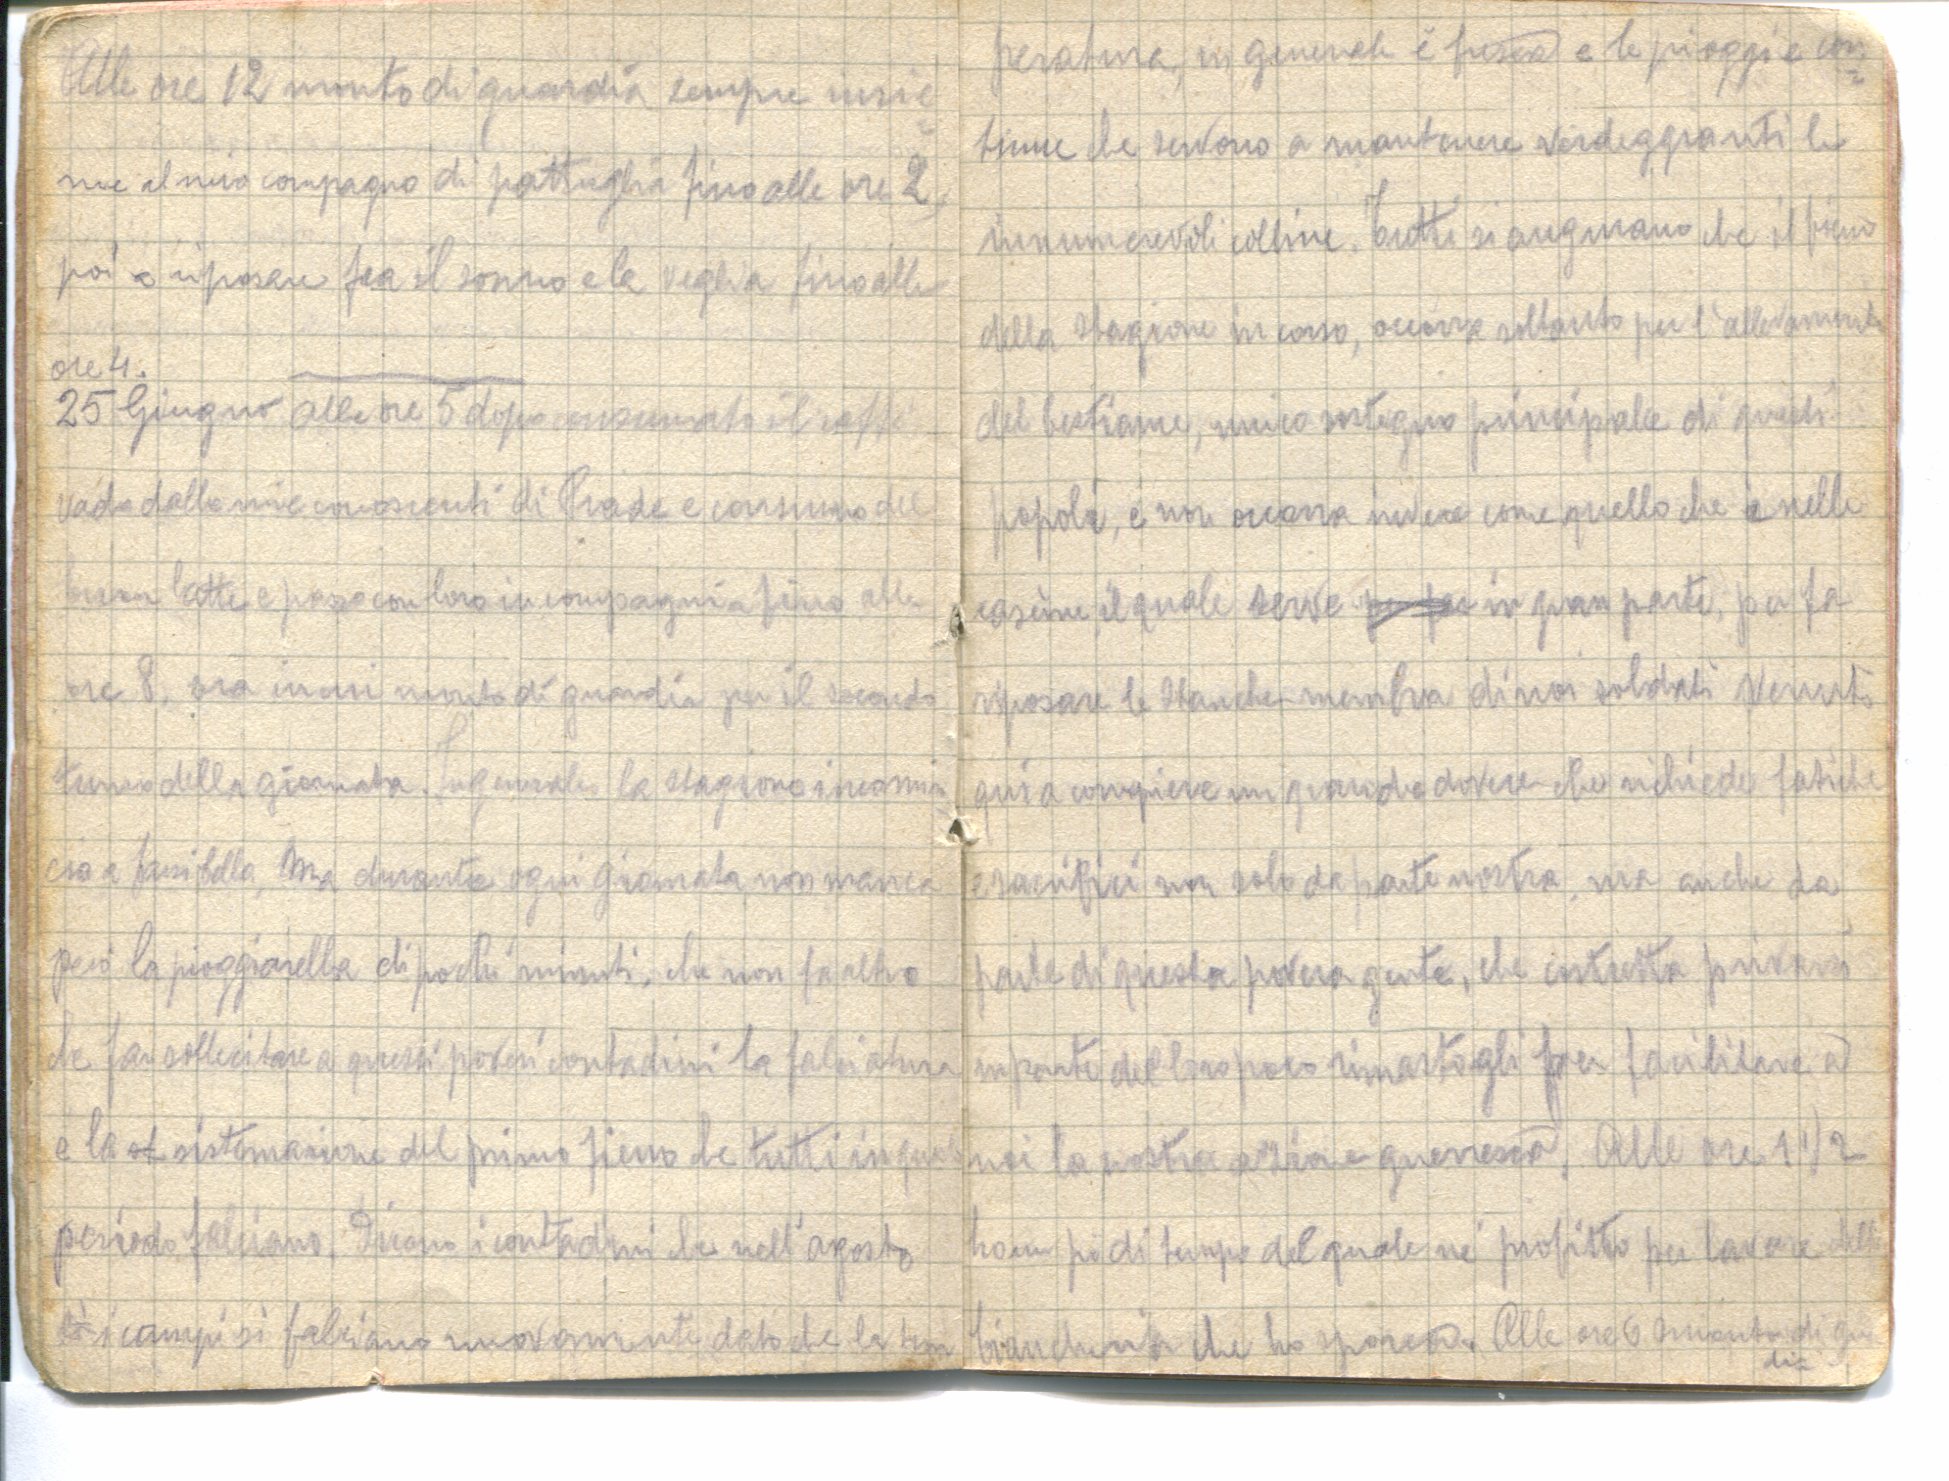 Alle ore 12 monto di guardia sempre insie=
me al mio compagno di pattuglia fino alle ore 2,
poi a riposare fra il sonno e la veglia fino alle
ore 4.
25 Giugno alle ore 5 dopo consumato il caffè
vado dalle mie conoscenti di Prade e consumo del
buon latte e passo con loro in compagnia fino alle
ore 8, ora in cui monto di guardia per il secondo
turno della giornata. In generale la stagione incomin
cia a farsi bella, ma durante ogni giornata non manca
però la pioggiarella di pochi minuti, che non fa altro
che far sollecitare a questi poveri contadini la falciatura
e la sistemazione del primo fieno che tutti in questo
periodo falciano. Dicono i contadini che nell'agosto
i campi si falciano nuovamente dato che la tem
peratura, in generale è fresca e le pioggie con=
tinue che servono a mantenere verdeggianti le
innumerevoli colline. Tutti si augurano che il fieno
della stagione in corso, occorra soltanto per l'allevamento
del bestiame, unico sostegno principale di questi
popoli, e non occorra invece come quello che è nelle
cascine, il quale serve in gran parte, per fa
riposare le stanche membra di noi soldati venuti
qui a compiere un grande dovere che richiede fatiche
e sacrifici non solo da parte nostra, ma anche da
parte di questa povera gente, che costretta privarsi
in parte del loro poco rimastogli per facilitare a
noi la nostra azione guerresca. Alle ore 1 1/2
ho un pò di tempo del quale ne profitto per lavare della
biancheria che ho sporca. Alle ore 6 smonto di guar
dia.